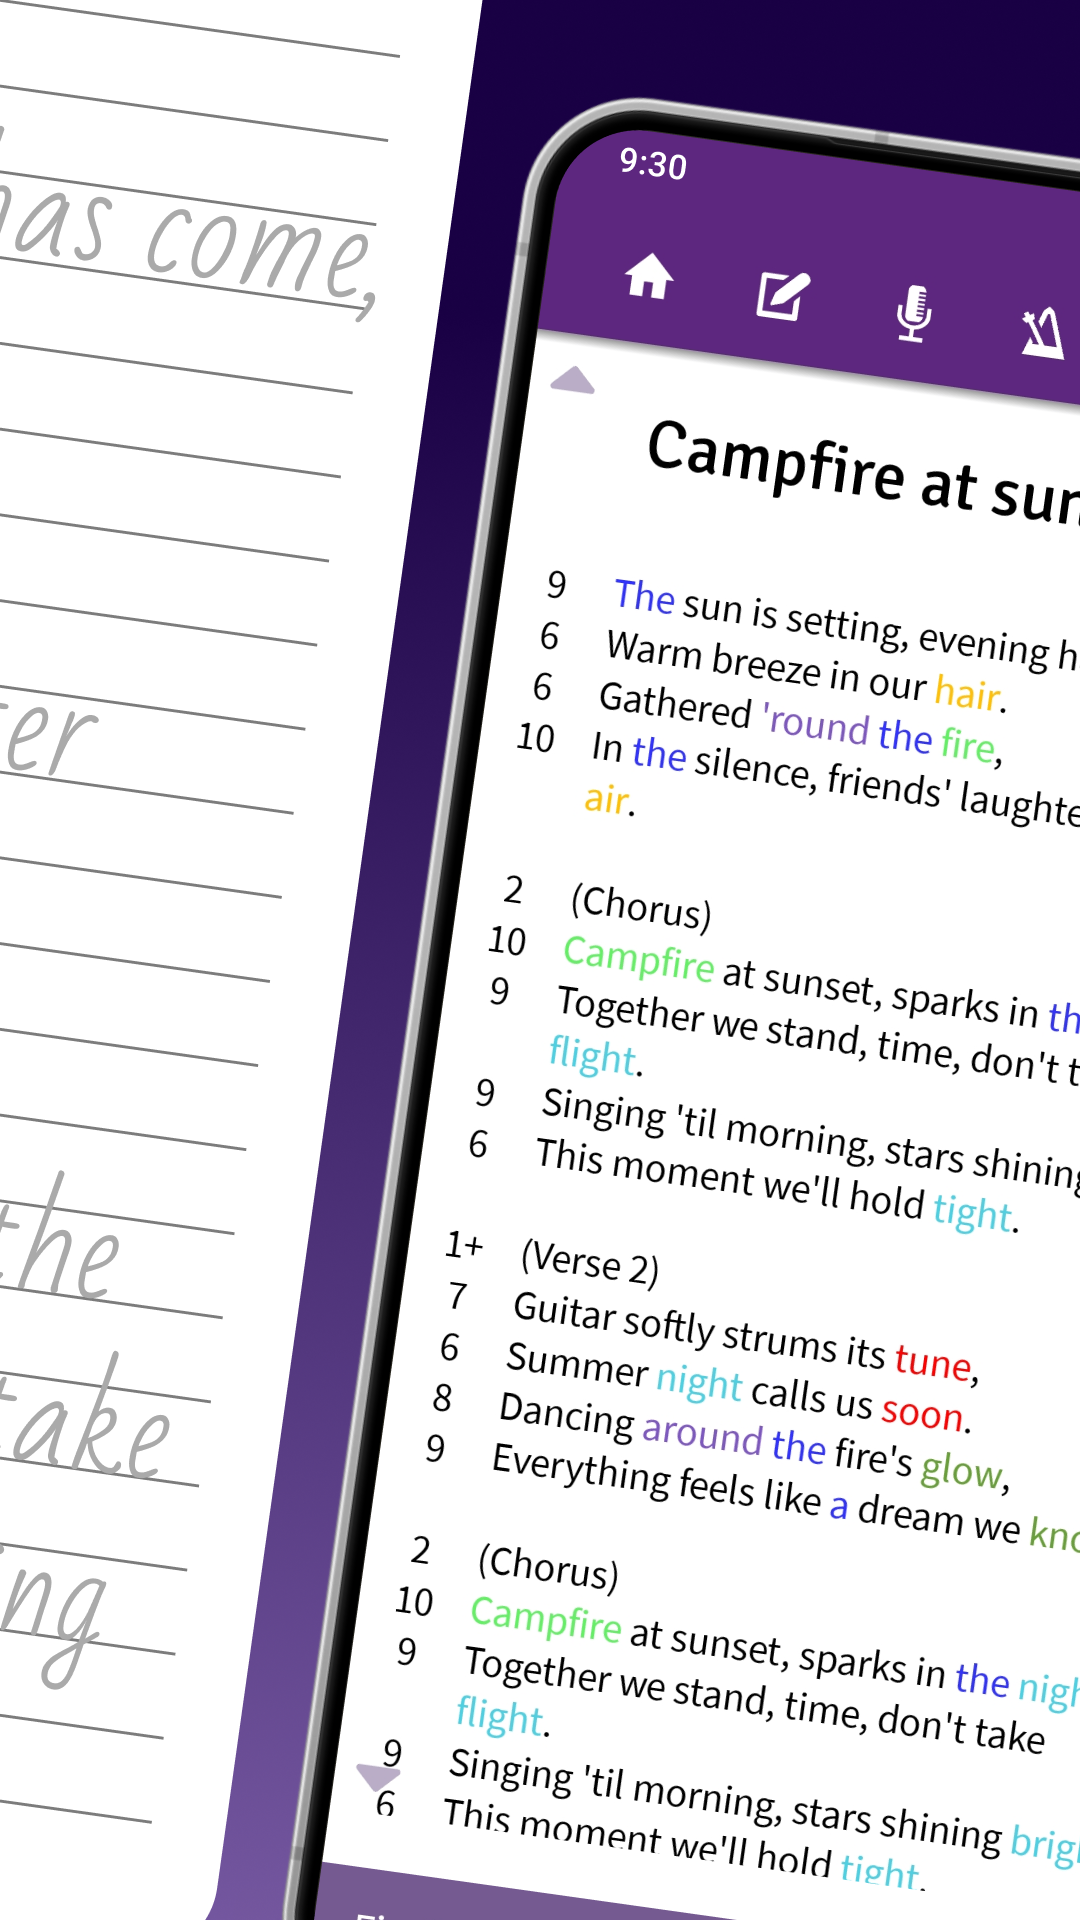 has come,
the
take
9:30
Campfire at sun
9 The sun is setting, evening h
6 Warm breeze in our hair.
6 Gathered 'round the fire,
10 In the silence, friends' laughte
air.
2 (Chorus)
10 Campfire at sunset, sparks in th
9 Together we stand, time, don't t
flight.
9 Singing 'til morning, stars shining
6 This moment we'll hold tight.
1+ (Verse 2)
7 Guitar softly strums its tune,
6 Summer night calls us soon.
8 Dancing around the fire's glow,
9 Everything feels like a dream we kno
2 (Chorus)
10 Campfire at sunset, sparks in the nigh
9 Together we stand, time, don't take
flight.
9 Singing 'til morning, stars shining brigh
6 This moment we'll hold tight.